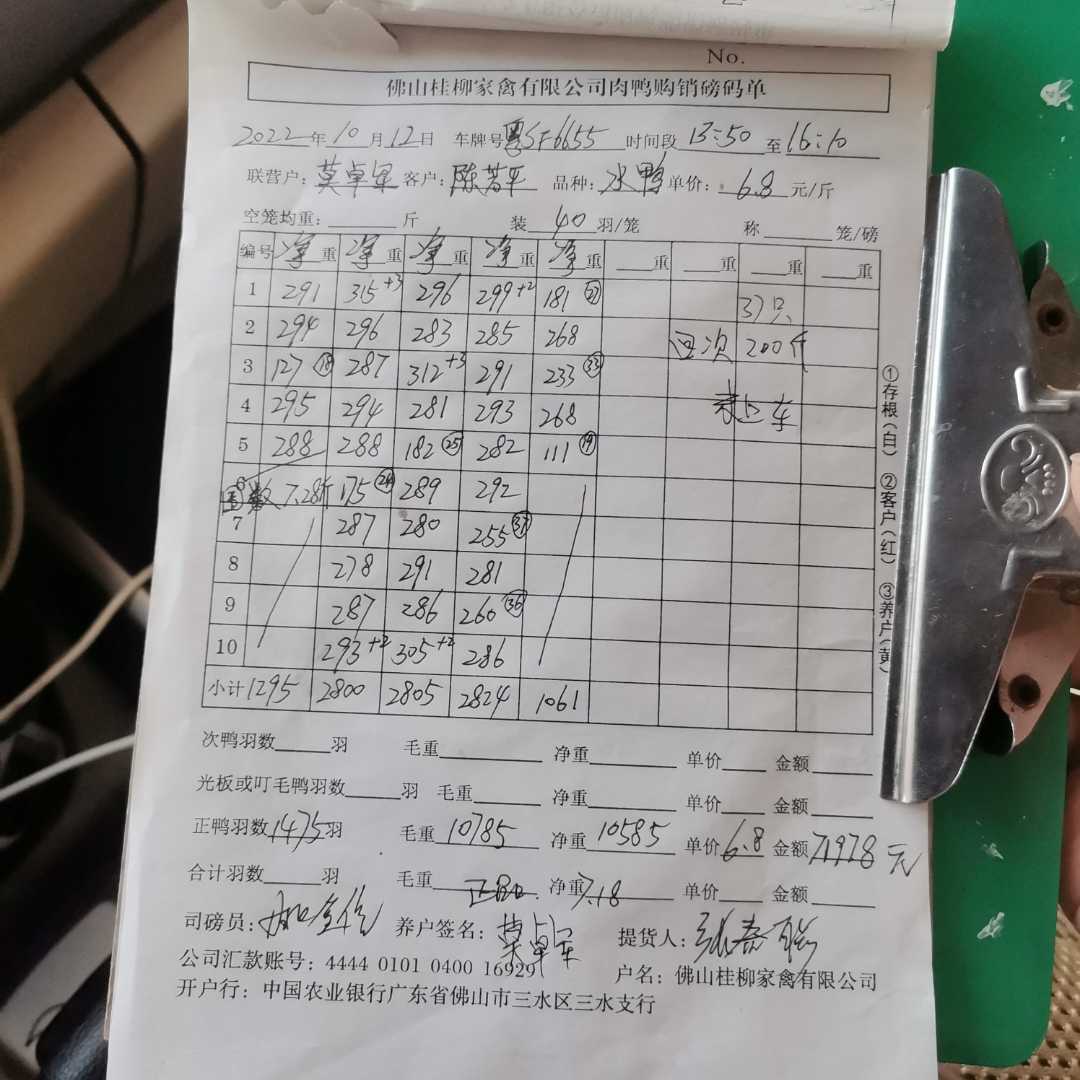 No.
佛山桂柳家禽有限公司肉鸭购销磅码单
2022年10月12日 车牌号 粤SF6655 时间段 13:50 至 16:10
联营户: 莫卓军 客户: 陈若平 品种: 水鸭 单价: 6.8 元/斤
空笼均重: 斤 装 40 羽/笼 称 笼/磅
编号 净重 净重 净重 净重 净重 重 重 重 重
1 291 315+3 296 299+2 181 (27) 37只
2 294 296 283 285 268 200斤
3 127 (18) 287 312+3 291 233 (33)
4 295 294 281 293 268 未上车
5 288 288 182 (25) 282 111 (19)
6 数 7.28斤 175 (24) 289 292
7 287 280 255 (37)
8 278 291 281
9 287 286 260 (36)
10 293+2 305+2 286
小计 1295 2800 2805 2824 1061
次鸭羽数 羽 毛重 净重 单价 金额
光板或叮毛鸭羽数 羽 毛重 净重 单价 金额
正鸭羽数 1475 羽 毛重 10785 净重 10585 单价 6.8 金额 71978 元
合计羽数 羽 毛重 净重 7.18 单价 金额
司磅员: 养户签名: 莫卓军 提货人:
公司汇款账号: 4444 0101 0400 16929 户名: 佛山桂柳家禽有限公司
开户行: 中国农业银行广东省佛山市三水区三水支行
①存根(白) ②客户(红) ③养户(黄)